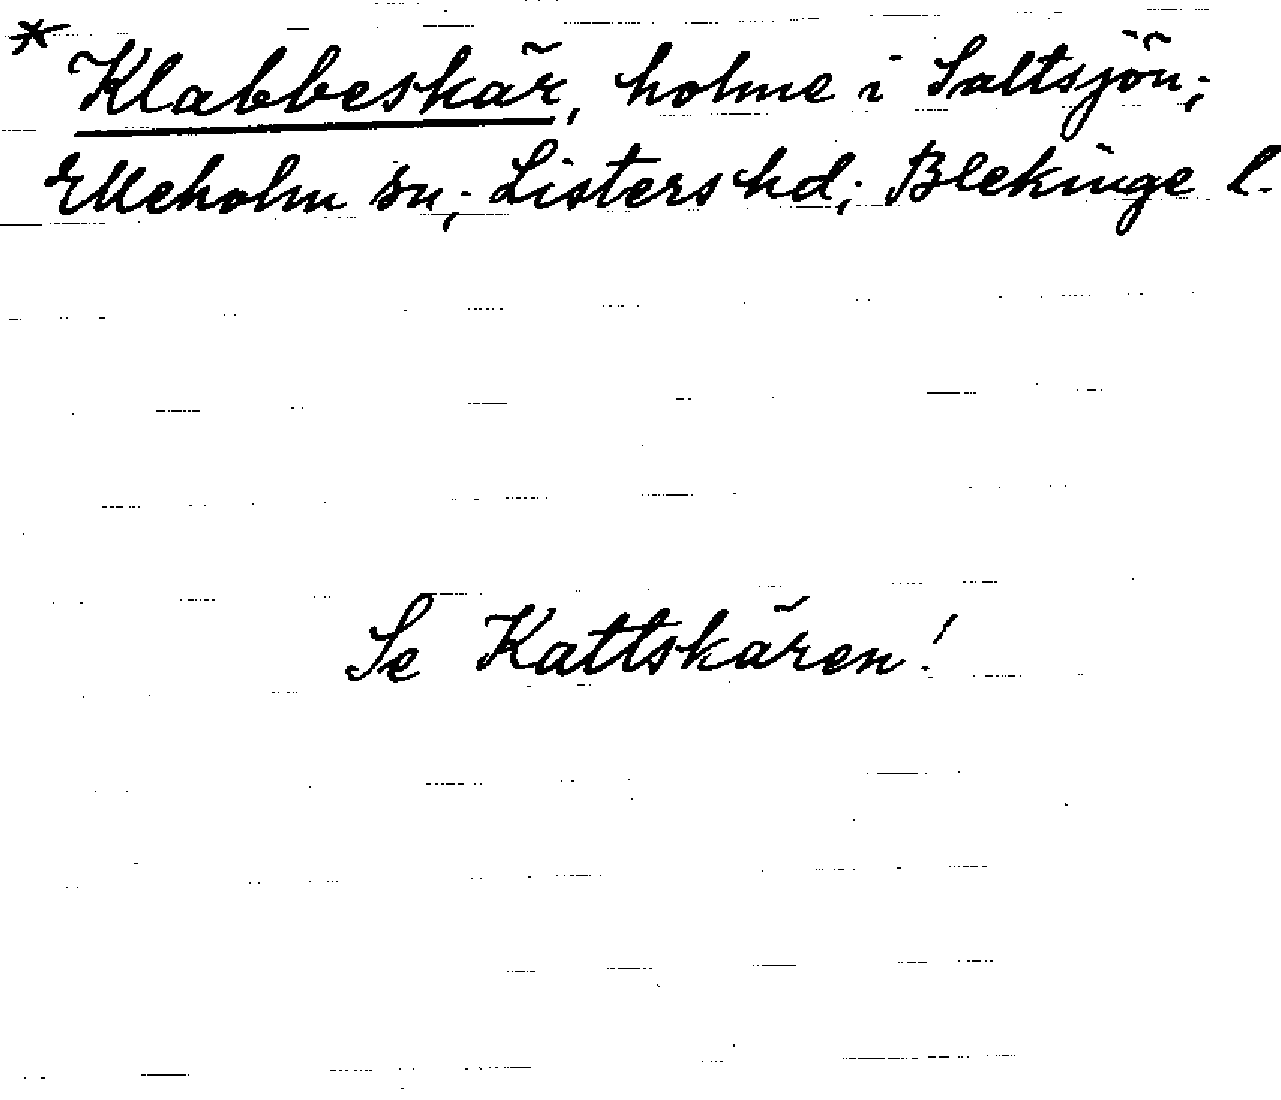 * Klabbeskär, holme i Saltsjön;
Elleholm sn; Listers hd; Blekinge l.
Se Kattskären!